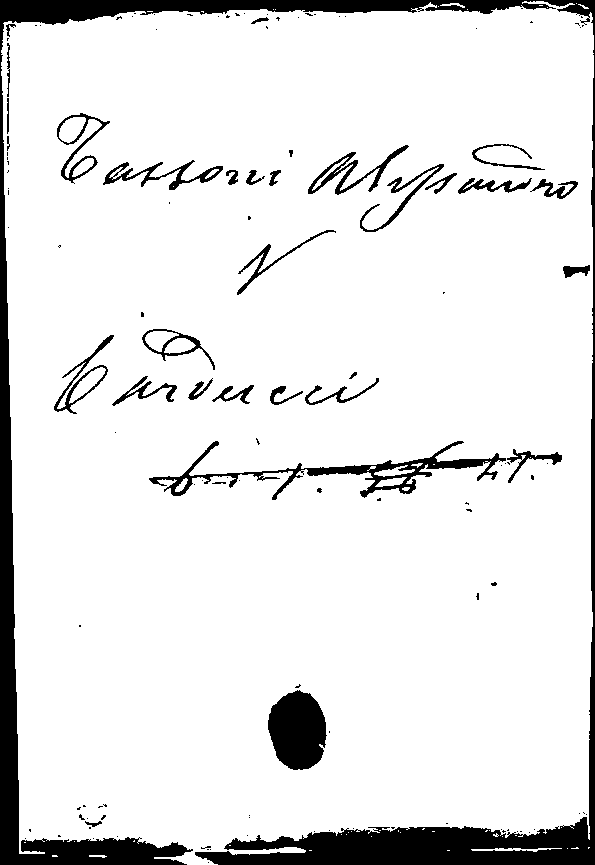 Tassoni Alessandro
V
Carducci